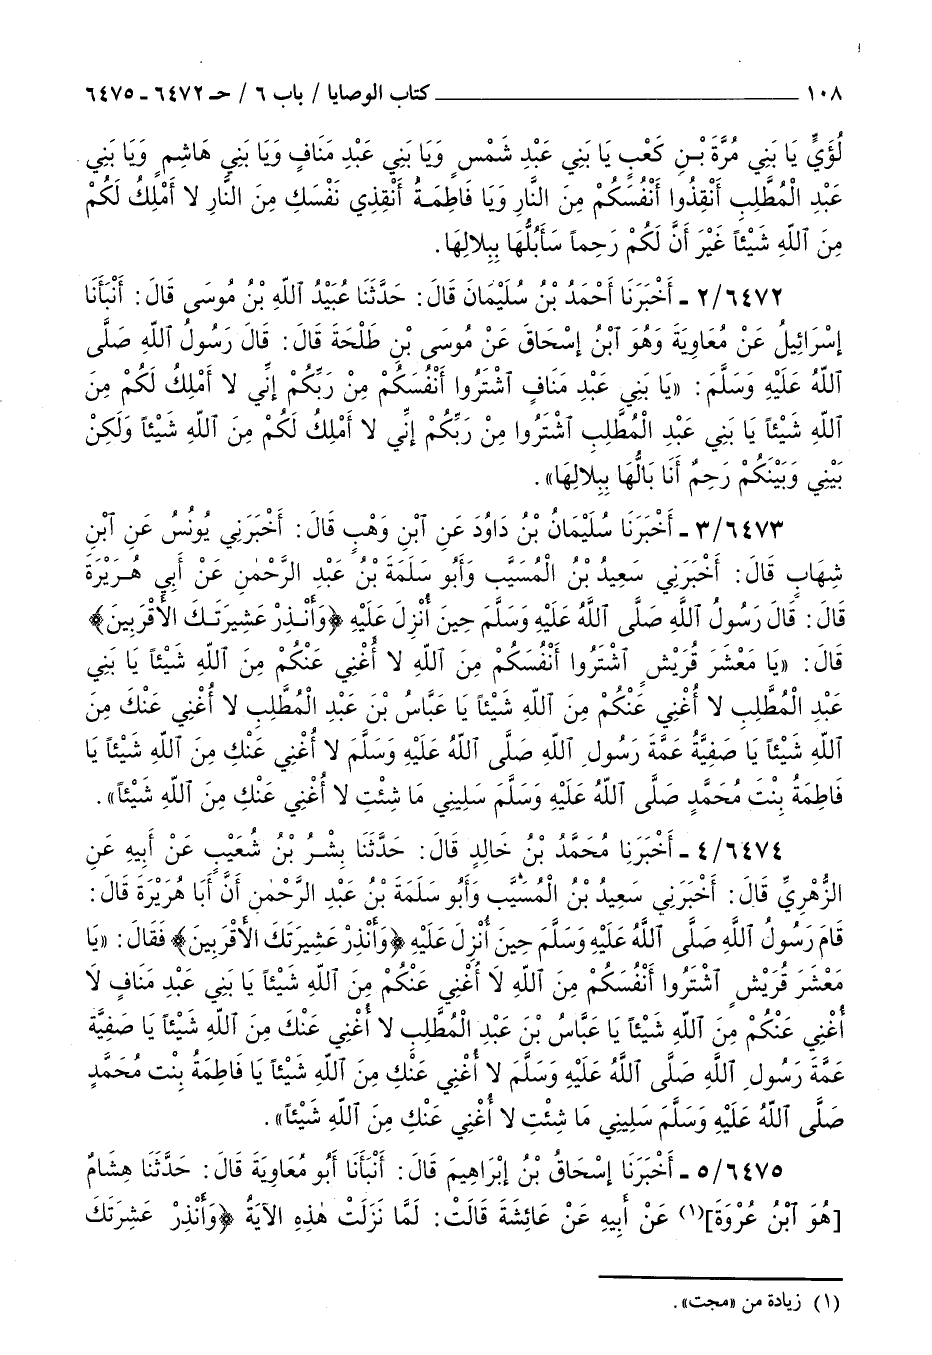 ١٠٨ ــــــــــــــــــــــــــــــــــــــــ كتاب الوصايا / باب ٦ / حـ ٦٤٧٢ - ٦٤٧٥
لُؤَيٍّ يَا بَنِي مُرَّةَ بْنِ كَعْبٍ يَا بَنِي عَبْدِ شَمْسٍ وَيَا بَنِي عَبْدِ مَنَافٍ وَيَا بَنِي هَاشِمٍ وَيَا بَنِي
عَبْدِ الْمُطَّلِبِ أَنْقِذُوا أَنْفُسَكُمْ مِنَ النَّارِ وَيَا فَاطِمَةُ أَنْقِذِي نَفْسَكِ مِنَ النَّارِ لا أَمْلِكُ لَكُمْ
مِنَ ٱللّهِ شَيْئاً غَيْرَ أَنَّ لَكُمْ رَحِماً سَأَبُلُّهَا بِبِلالِهَا.
٢/٦٤٧٢ - أَخْبَرَنَا أَحْمَدُ بْنُ سُلَيْمَانَ قَالَ: حَدَّثَنَا عُبَيْدُ ٱللّهِ بْنُ مُوسَى قَالَ: أَنْبَأَنَا
إِسْرَائِيلُ عَنْ مُعَاوِيَةَ وَهُوَ ٱبْنُ إِسْحَاقَ عَنْ مُوسَى بْنِ طَلْحَةَ قَالَ: قَالَ رَسُولُ ٱللّهِ صَلَّى
ٱللّهُ عَلَيْهِ وَسَلَّمَ: «يَا بَنِي عَبْدِ مَنَافٍ ٱشْتَرُوا أَنْفُسَكُمْ مِنْ رَبِّكُمْ إِنِّي لا أَمْلِكُ لَكُمْ مِنَ
ٱللّهِ شَيْئاً يَا بَنِي عَبْدِ الْمُطَّلِبِ ٱشْتَرُوا مِنْ رَبِّكُمْ إِنِّي لا أَمْلِكُ لَكُمْ مِنَ ٱللّهِ شَيْئاً وَلَكِنْ
بَيْنِي وَبَيْنَكُمْ رَحِمٌ أَنَا بَالُّهَا بِبِلالِهَا».
٣/٦٤٧٣ - أَخْبَرَنَا سُلَيْمَانُ بْنُ دَاوُدَ عَنِ ٱبْنِ وَهْبٍ قَالَ: أَخْبَرَنِي يُونُسُ عَنِ ٱبْنِ
شِهَابٍ قَالَ: أَخْبَرَنِي سَعِيدُ بْنُ الْمُسَيَّبِ وَأَبُو سَلَمَةَ بْنُ عَبْدِ الرَّحْمٰنِ عَنْ أَبِي هُرَيْرَةَ
قَالَ: قَالَ رَسُولُ ٱللَّهِ صَلَّى ٱللَّهُ عَلَيْهِ وَسَلَّمَ حِينَ أُنْزِلَ عَلَيْهِ ﴿وَأَنْذِرْ عَشِيرَتَكَ الأَقْرَبِينَ﴾
قَالَ: «يَا مَعْشَرَ قُرَيْشٍ ٱشْتَرُوا أَنْفُسَكُمْ مِنَ ٱللّهِ لا أُغْنِي عَنْكُمْ مِنَ ٱللّهِ شَيْئاً يَا بَنِي
عَبْدِ الْمُطَّلِبِ لا أُغْنِي عَنْكُمْ مِنَ ٱللّهِ شَيْئاً يَا عَبَّاسُ بْنَ عَبْدِ الْمُطَّلِبِ لا أُغْنِي عَنْكَ مِنَ
ٱللّهِ شَيْئاً يَا صَفِيَّةُ عَمَّةَ رَسُولِ ٱللّهِ صَلَّى ٱللّهُ عَلَيْهِ وَسَلَّمَ لا أُغْنِي عَنْكِ مِنَ ٱللّهِ شَيْئاً يَا
فَاطِمَةُ بِنْتَ مُحَمَّدٍ صَلَّى ٱللّهُ عَلَيْهِ وَسَلَّمَ سَلِينِي مَا شِئْتِ لا أُغْنِي عَنْكِ مِنَ ٱللّهِ شَيْئاً».
٤/٦٤٧٤ - أَخْبَرَنَا مُحَمَّدُ بْنُ خَالِدٍ قَالَ: حَدَّثَنَا بِشْرُ بْنُ شُعَيْبٍ عَنْ أَبِيهِ عَنِ
الزُّهْرِيِّ قَالَ: أَخْبَرَنِي سَعِيدُ بْنُ الْمُسَيَّبِ وَأَبُو سَلَمَةَ بْنُ عَبْدِ الرَّحْمٰنِ أَنَّ أَبَا هُرَيْرَةَ قَالَ:
قَامَ رَسُولُ ٱللَّهِ صَلَّى ٱللَّهُ عَلَيْهِ وَسَلَّمَ حِينَ أُنْزِلَ عَلَيْهِ ﴿وَأَنْذِرْ عَشِيرَتَكَ الأَقْرَبِينَ﴾ فَقَالَ: «يَا
مَعْشَرَ قُرَيْشٍ ٱشْتَرُوا أَنْفُسَكُمْ مِنَ ٱللّهِ لَا أُغْنِي عَنْكُمْ مِنَ ٱللّهِ شَيْئاً يَا بَنِي عَبْدِ مَنَافٍ لَا
أُغْنِي عَنْكُمْ مِنَ ٱللّهِ شَيْئاً يَا عَبَّاسُ بْنَ عَبْدِ الْمُطَّلِبِ لا أُغْنِي عَنْكَ مِنَ ٱللّهِ شَيْئاً يَا صَفِيَّةُ
عَمَّةَ رَسُولِ ٱللَّهِ صَلَّى ٱللَّهُ عَلَيْهِ وَسَلَّمَ لا أُغْنِي عَنْكِ مِنَ ٱللّهِ شَيْئاً يَا فَاطِمَةُ بِنْتَ مُحَمَّدٍ
صَلَّى ٱللّهُ عَلَيْهِ وَسَلَّمَ سَلِينِي مَا شِئْتِ لا أُغْنِي عَنْكِ مِنَ ٱللّهِ شَيْئاً».
٥/٦٤٧٥ - أَخْبَرَنَا إِسْحَاقُ بْنُ إِبْرَاهِيمَ قَالَ: أَنْبَأَنَا أَبُو مُعَاوِيَةَ قَالَ: حَدَّثَنَا هِشَامٌ
[هُوَ ٱبْنُ عُرْوَةَ](١) عَنْ أَبِيهِ عَنْ عَائِشَةَ قَالَتْ: لَمَّا نَزَلَتْ هٰذِهِ الآيَةُ ﴿وَأَنْذِرْ عَشِرَتَكَ
(١) زيادة من «مجت».